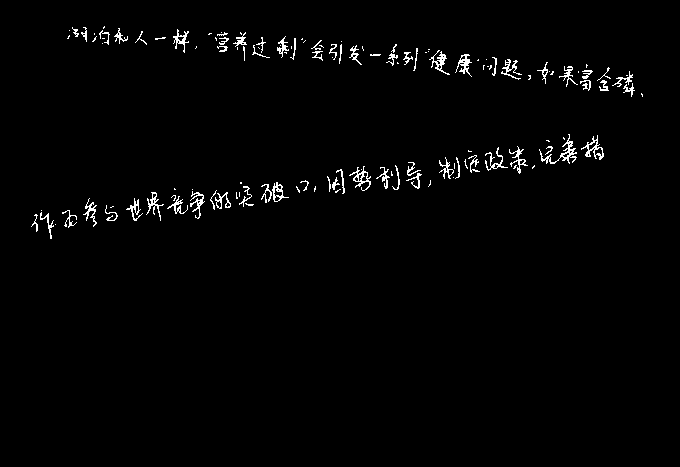 湖泊和人一样，“营养过剩”会引发一系列“健康”问题，如果富含磷、
作为参与世界竞争的突破口，因势利导，制定政策，完善措